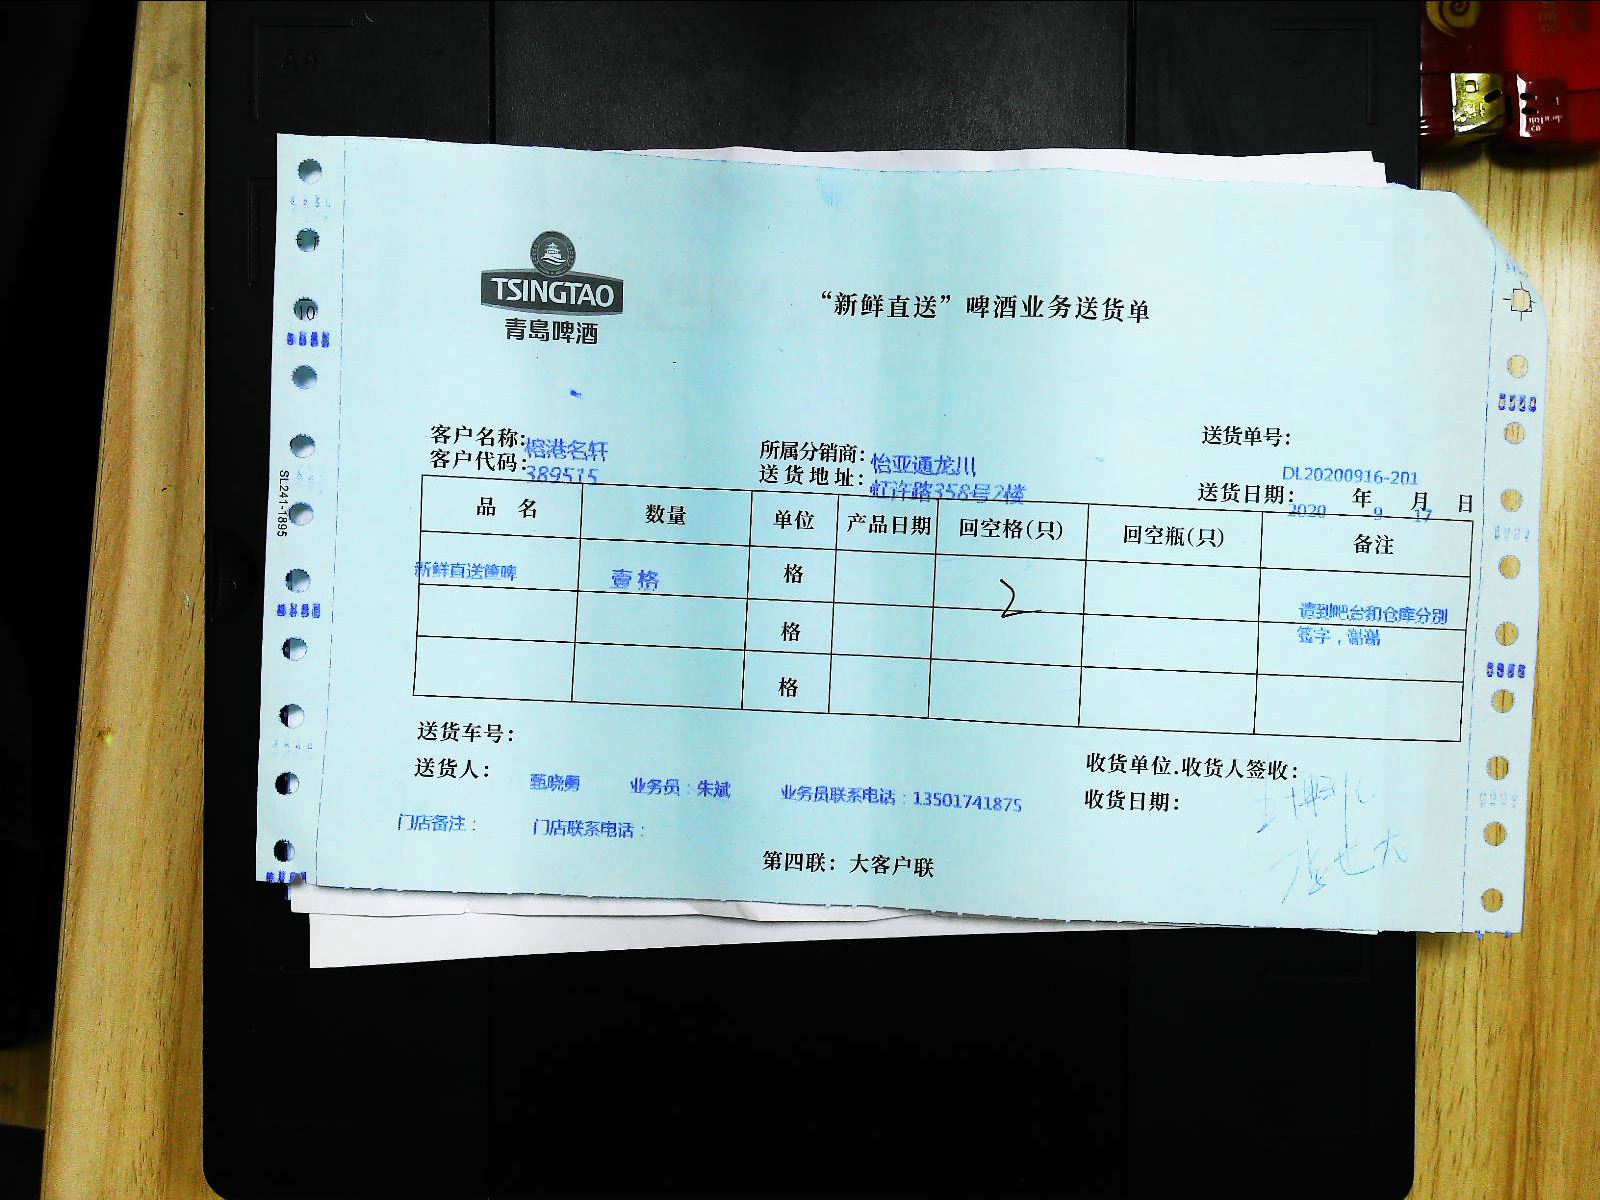 A4
TSINGTAO
青岛啤酒
“新鲜直送”啤酒业务送货单
10
SL241-1895
客户名称:榕港名轩
所属分销商:怡亚通龙川
送货单号:
DL20200916-201
客户代码:389515
送货地址:虹许路358号2楼
送货日期: 2020 年 9 月 17 日
品 名 数量 单位 产品日期 回空格(只) 回空瓶(只) 备注
新鲜直送筐啤 壹格 格 2 请到吧台和仓库分别
签字，谢谢
格
格
送货车号:
送货人: 甄晓勇 业务员：朱斌 业务员联系电话：13501741875
收货单位.收货人签收:
收货日期:
门店备注： 门店联系电话：
第四联：大客户联